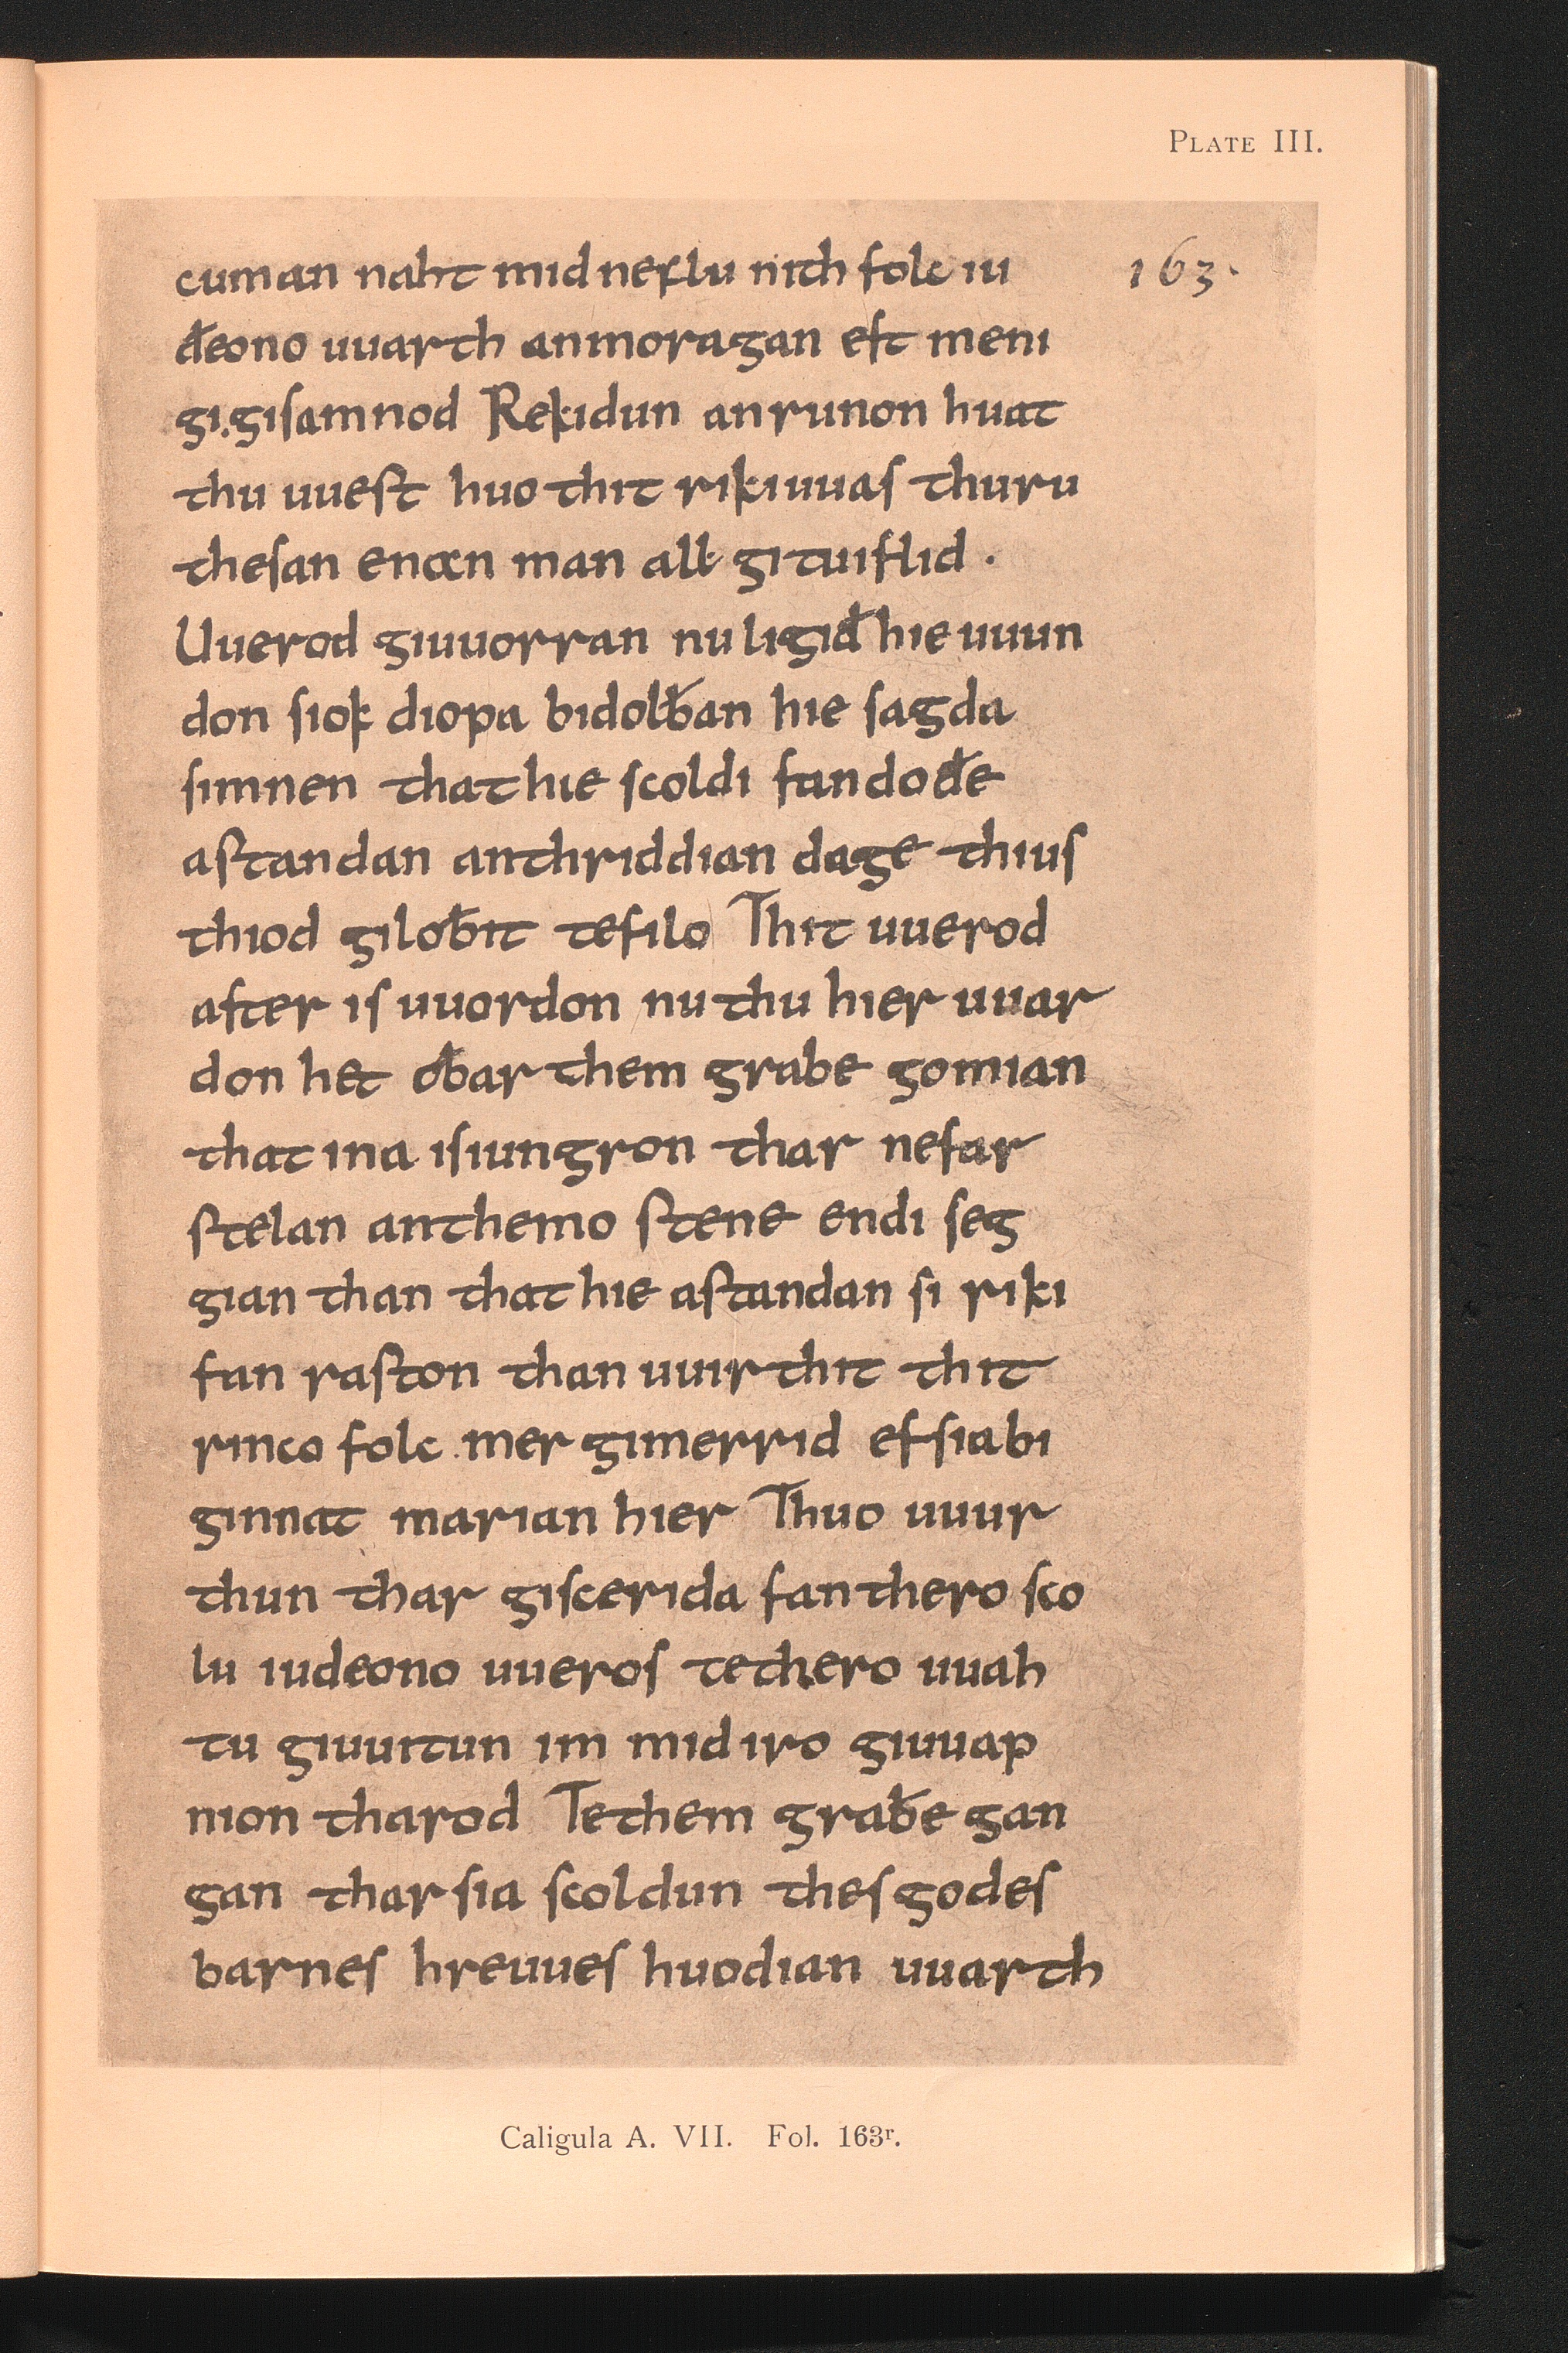 PLATE III.
cuman naht mid neflu nith folc iu 163.
đeono uuarth an moragan eft meni
gi. gisamnod Rekidun an runon huat
thu uuest huo thit riki uuas thuru
thesan enan man all gituiflid .
Uuerod giuuorran nu ligiđ hie uuun
don siok diopa bidolƀan hie sagda
simnen that hie scoldi fan dođe
astandan an thriddian dage thius
thiod giloƀit te filo Thit uuerod
after is uuordon nu thu hier uuar
don het oƀar them grabe gomian
that ina is iungron thar ne far
stelan an themo stene endi seg
gian than that hie astandan si riki
fan raston than uuirthit thit
rinco folc mer gimerrid ef sia bi
ginnat marian hier Thuo uuur
thun thar giscerida fan thero sco
lu iudeono uueros te thero uuah
tu giuuitun im mid iro giuuap
nion tharod Te them graƀe gan
gan thar sia scoldun thes godes
barnes hreuues huodian uuarth
Caligula A. VII. Fol. 163r.